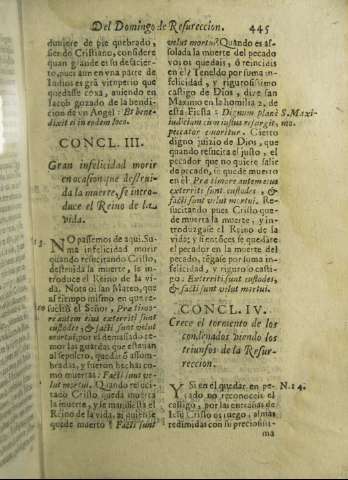 Del Domingo de Resureccion. 445
dujere de pie quebrado,
siendo Cristiano, considere
quan grande es su desacier-
to, pues aun en vna parte de
Indios es grã vituperio que
quedasse coxa, auiendo en
Jacob gozado de la bendi-
cion de vn Angel: Et bene-
dixit ei in eodem loco.
CONCL. III.
Gran infelicidad morir
en ocasion que destrui-
da la muerte, se intro-
duce el Reino de la
vida.
NO passemos de aqui. Su-
ma infelicidad morir
quando resucitando Cristo,
destruida la muerte, se in-
troduce el Reino de la vi-
da. Notò oi san Mateo, que
al tiempo mismo en que re-
sucitò el Señor, Præ timo-
re autem eius exterriti sunt
custodes, & facti sunt velut
mortui, por el demasiado te-
mor las guardas que estauan
al sepolcro, quedarõ assom-
bradas, y fueron hechas co-
mo muertas: Facti sunt ve-
lut mortui. Quando reluci-
tado Cristo, queda muerta
la muerte, y se manifiesta el
Reino de la vida, ai quien se
quede muerto? Facti sunt
velut mortui? Quando es as-
solada la muerte del pecado
vos os quedais, ò reincidis
en el? Teneldo por suma in-
felicidad, y rigurosissimo
castigo de Dios, dize san
Maximo en la homilia 2. de
esta Fiesta: Dignum planè
iudicium cum iustus resurgit,
peccator emoritur. Cierto
digno juizio de Dios, que
quando resucita el justo, el
pecador que no quiere salir
de pecado, se quede muerto
en èl. Præ timore autem eius
exterriti sunt custodes, &
facti sunt velut mortui. Re-
sucitando pues Cristo que-
de muerta la muerte, y in-
troduzgase el Reino de la
vida; y si entõces se quedare
el pecador en la muerte del
pecado, tẽgalo por suma in-
felicidad, y riguroso casti-
go. Exterriti sunt custodes,
& facti sunt velut mortui.
S. Maxi-
mo.
CONCL. IV.
Crece el tormento de los
condenados viendo los
triunfos de la Resur-
reccion.
Y Si en el quedar en pe-
cado no reconoceis el
castigo, por las entrañas de
Iesu Cristo os ruego, almas
redimidas con su preciosissi-
N. 14.
ma